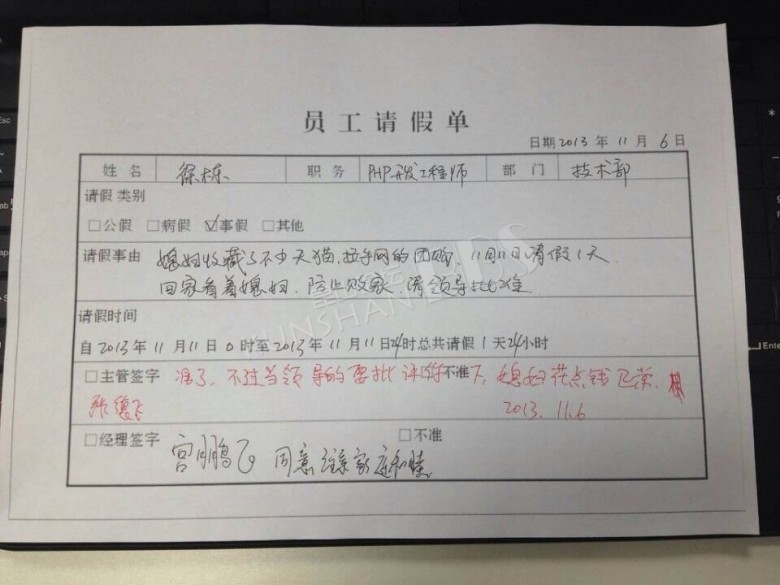 员工请假单
日期2013年11月6日
姓名 徐栋 职务 PHP开发工程师 部门 技术部
请假类别
□公假 □病假 ☑事假 □其他
请假事由 媳妇收藏了不少天猫、拉手网的团购,11月11日请假1天
回家看着媳妇,防止败家,请领导批准
请假时间
自2013年11月11日0时至2013年11月11日24时总共请假1天24小时
□主管签字 准了,不过当领导的要批评你 □不准 下,媳妇花点钱
张德飞 2013.11.6
□经理签字 宫鹏飞 同意 家庭和睦 □不准
KUNSHAN BBS